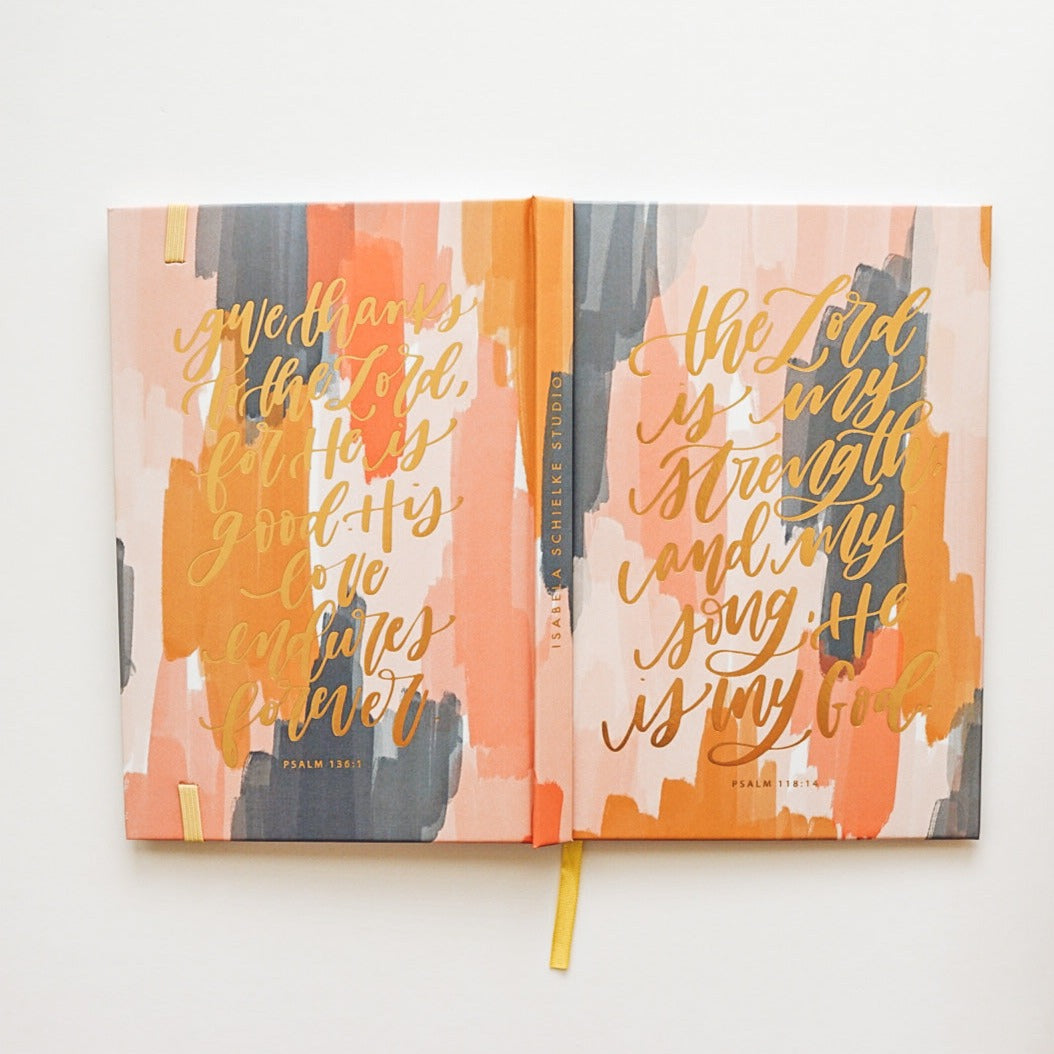 give thanks
to the Lord,
for He is
good. His
love
endures
forever
PSALM 136:1
ISABELA SCHIELKE STUDIO
the Lord
is my
strength
and my
song. He
is my God.
PSALM 118:14